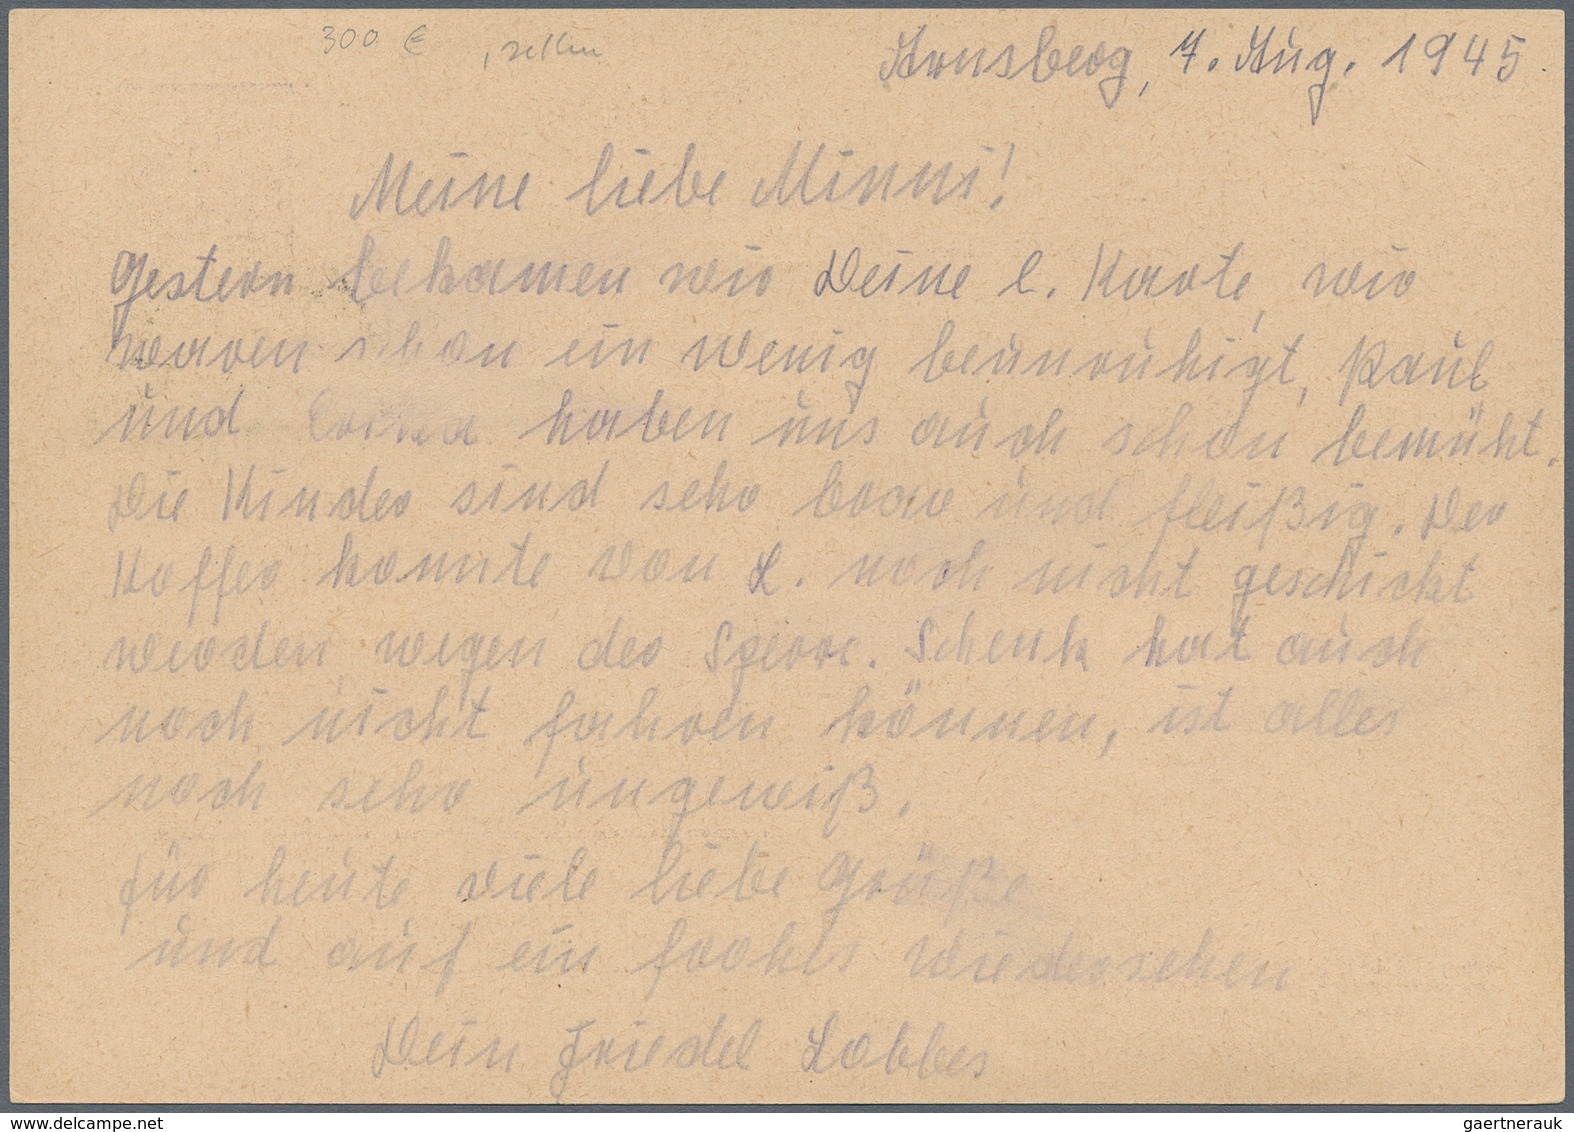 300 € , selten
Arnsberg, 7. Aug. 1945.
Meine liebe Minni!
Gestern bekamen wir Deine l. Karte, wir
waren schon ein wenig beunruhigt, Paul
und haben uns auch schon bemüht.
Die Kinder sind sehr brav und fleißig. Der
Koffer konnte von L. noch nicht geschickt
werden, wegen der Sperre. Schenk hat auch
noch nicht fahren können, ist alles
noch sehr ungewiß.
für heute viele liebe Grüße
und auf ein frohes wiedersehen
Dein Friedel
delcampe.net
gaertnerauk